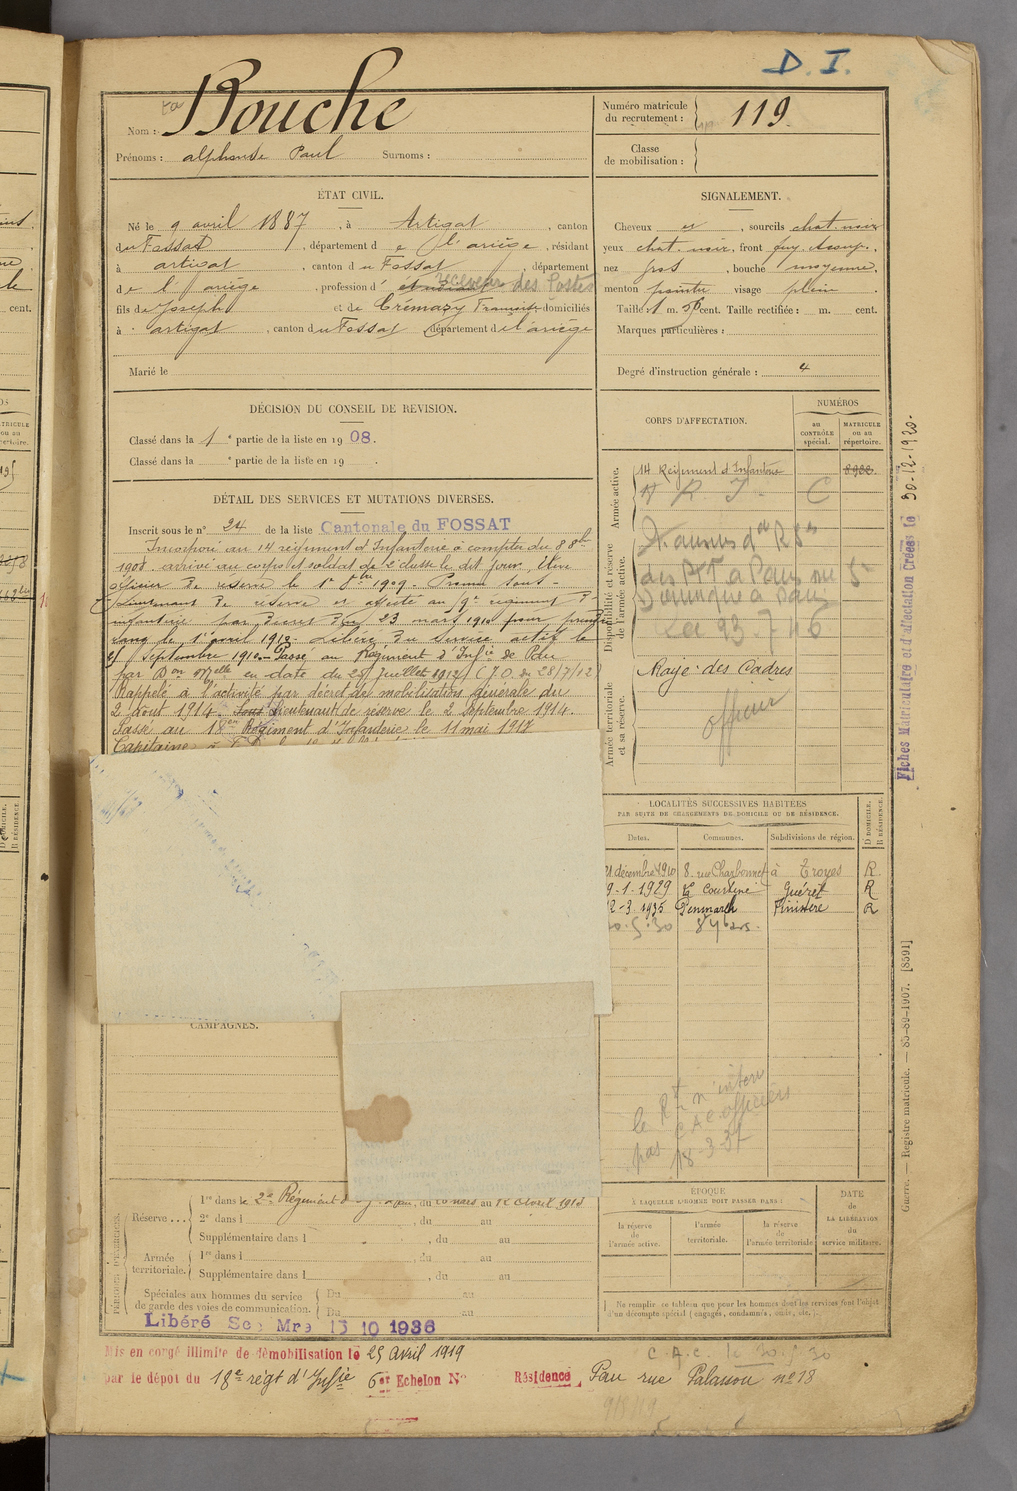 D. I.
Nom : Bouche
Prénoms : alphonse Paul Surnoms :
Numéro matricule
du recrutement : 119
Classe
de mobilisation :
ÉTAT CIVIL.
Né le 9 avril 1887, à Artigat, canton
du Fossat, département de l'ariège, résidant
à artigat, canton du Fossat, département
de l'ariège, profession d' étudiant receveur des Postes
fils de Joseph et de Crémazy domiciliés
à artigat, canton du Fossat département de l'ariège
Marié le
SIGNALEMENT.
Cheveux et, sourcils chat. noir
yeux chat. noir, front
nez gros, bouche moyenne,
menton pointu visage plein
Taille : 1 m. cent. Taille rectifiée : m. cent.
Marques particulières :
Degré d'instruction générale : 4
DÉCISION DU CONSEIL DE REVISION.
Classé dans la 1e partie de la liste en 1908.
Classé dans la e partie de la liste en 19 .
CORPS D'AFFECTATION.
NUMÉROS
au
CONTRÔLE
spécial.
MATRICULE
ou au
répertoire.
Armée active.
14 Régiment d'Infanterie
R I C
Disponibilité et réserve
de l'armée active.
à Pau
Armée territoriale
et sa réserve.
Raye des Cadres
officier
DÉTAIL DES SERVICES ET MUTATIONS DIVERSES.
Inscrit sous le n° 24 de la liste Cantonale du FOSSAT
Incorporé au 14 régiment d'Infanterie à compter du 8 8bre
1908 arrivé au corps et soldat de 2e classe le dit jour. Elève
officier de réserve le 1er 8bre 1909. Promu Sous-
Lieutenant de réserve et affecté au 9e régiment d'
infanterie par décret du 23 mars 1910 pour prendre
rang le 1er avril 1910. libéré du service actif le
25 septembre 1910. Passé au Régiment d'Infie de Pau
par Don Mtelle en date du 25 juillet 1912 (J.O. du 28/7/12)
Rappelé à l'activité par décret de mobilisation générale du
2 août 1914. Sous Lieutenant de réserve le 2 septembre 1914.
Passé au 18em Régiment d'Infanterie le 11 mai 1917
Capitaine à
LOCALITÉS SUCCESSIVES HABITÉES
PAR SUITE DE CHANGEMENTS DE DOMICILE OU DE RÉSIDENCE.
Dates. Communes. Subdivisions de région. D DOMICILE. R RÉSIDENCE.
21 décembre 1910 8. rue Charbonnet à Troyes R
9-1-1929 La Courtine Guéret R
12-3-1935 Penmarch Finistère R
20.5.30
CAMPAGNES.
le Rt n'intéresse
pas CAC officiers
18-3-37
PÉRIODES D'EXERCICES.
Réserve ... 1re dans le 2e Régiment d' , du mars au 12 Avril 1913
2e dans l , du au
Supplémentaire dans l , du au
Armée
territoriale. 1re dans l , du au
Supplémentaire dans l , du au
Spéciales aux hommes du service
de garde des voies de communication. Du au
Du au
Libéré Sce Mre 15 10 1936
ÉPOQUE
À LAQUELLE L'HOMME DOIT PASSER DANS :
la réserve
de
l'armée active.
l'armée
territoriale.
la réserve
de
l'armée territoriale.
DATE
de
LA LIBÉRATION
du
service militaire.
Ne remplir ce tableau que pour les hommes dont les services font l'objet
d'un décompte spécial (engagés, condamnés, omis, etc.).
Mis en congé illimité de démobilisation le 25 Avril 1919
par le dépôt du 18e régt d'Infie 6er Echelon N° Résidence Pau rue Palassou n° 18
C.A.C. le 20.5.30
Fiches Matriculaire et d'affectation Créées le 30-12-1920.
Guerre. — Registre matricule. — 85-89-1907. [8591]